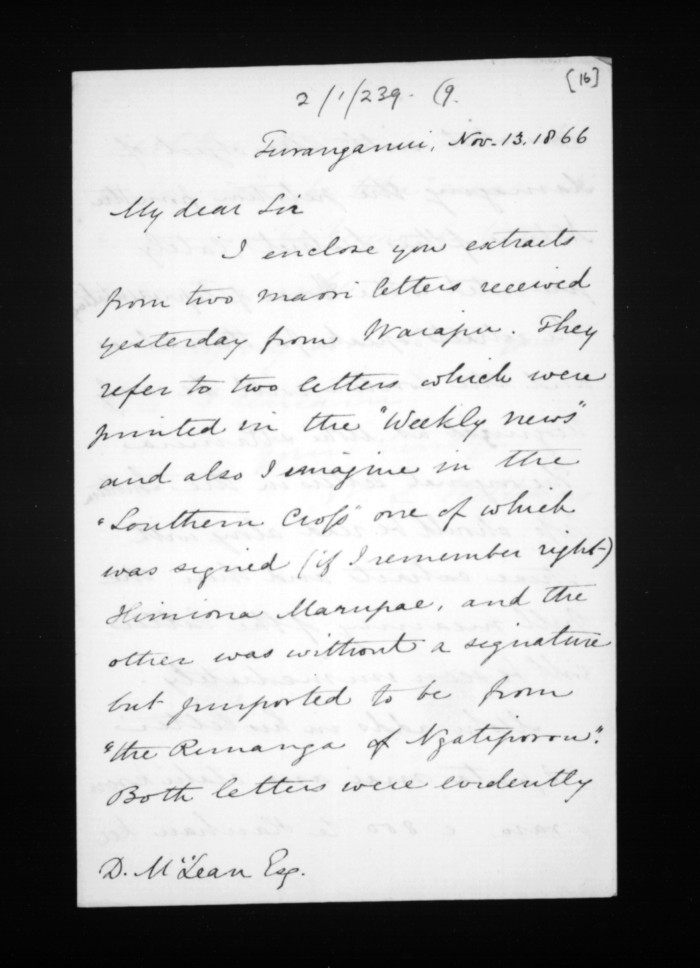 [16]
2/1/239. (9.
Turanganui, Nov. 13. 1866
My dear Sir
I enclose you extracts
from two maori letters received
yesterday from Waiapu. They
refer to two letters which were
printed in the "Weekly news"
and also I imagine in the
"Southern Cross" one of which
was signed (if I remember right)
Himiona Marupae, and the
other was without a signature
but purported to be from
"the Runanga of Ngatiporou".
Both letters were evidently
D. McLean Esq.